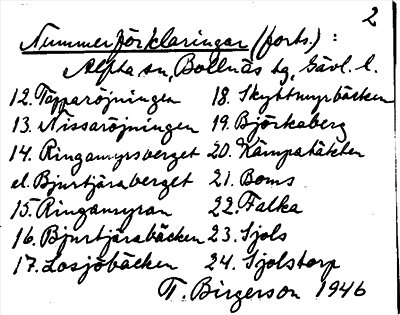 2
Nummerförklaringar (forts.) :
Alfta sn, Bollnäs tg, Gävl. l.
12. Tepparöjningen 18. Skyttmyrbäcken
13. Nissaröjningen 19. Björkaberg
14. Ringamyrsverget 20. Kämpatäkten
el. Bjurtjäraberget 21. Boms
15. Ringamyran 22. Falka
16. Bjurtjärabäcken 23. Sjols
17. Losjöbäcken 24. Sjolstorp
T. Birgerson 1946